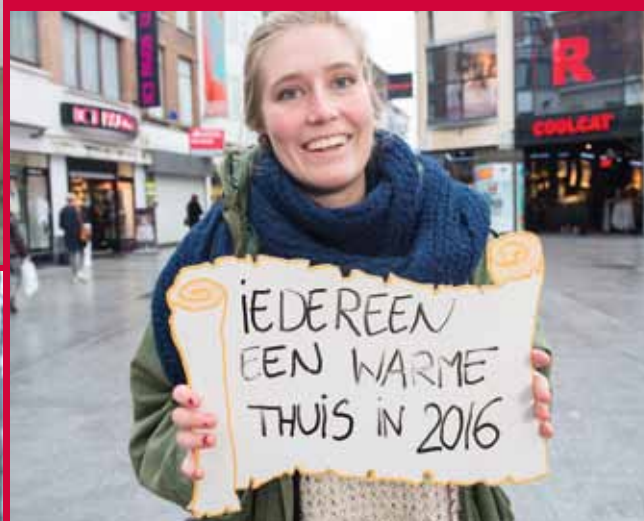 R
COOLCAT
iEDEREEN
EEN WARME
THUiS iN 2016